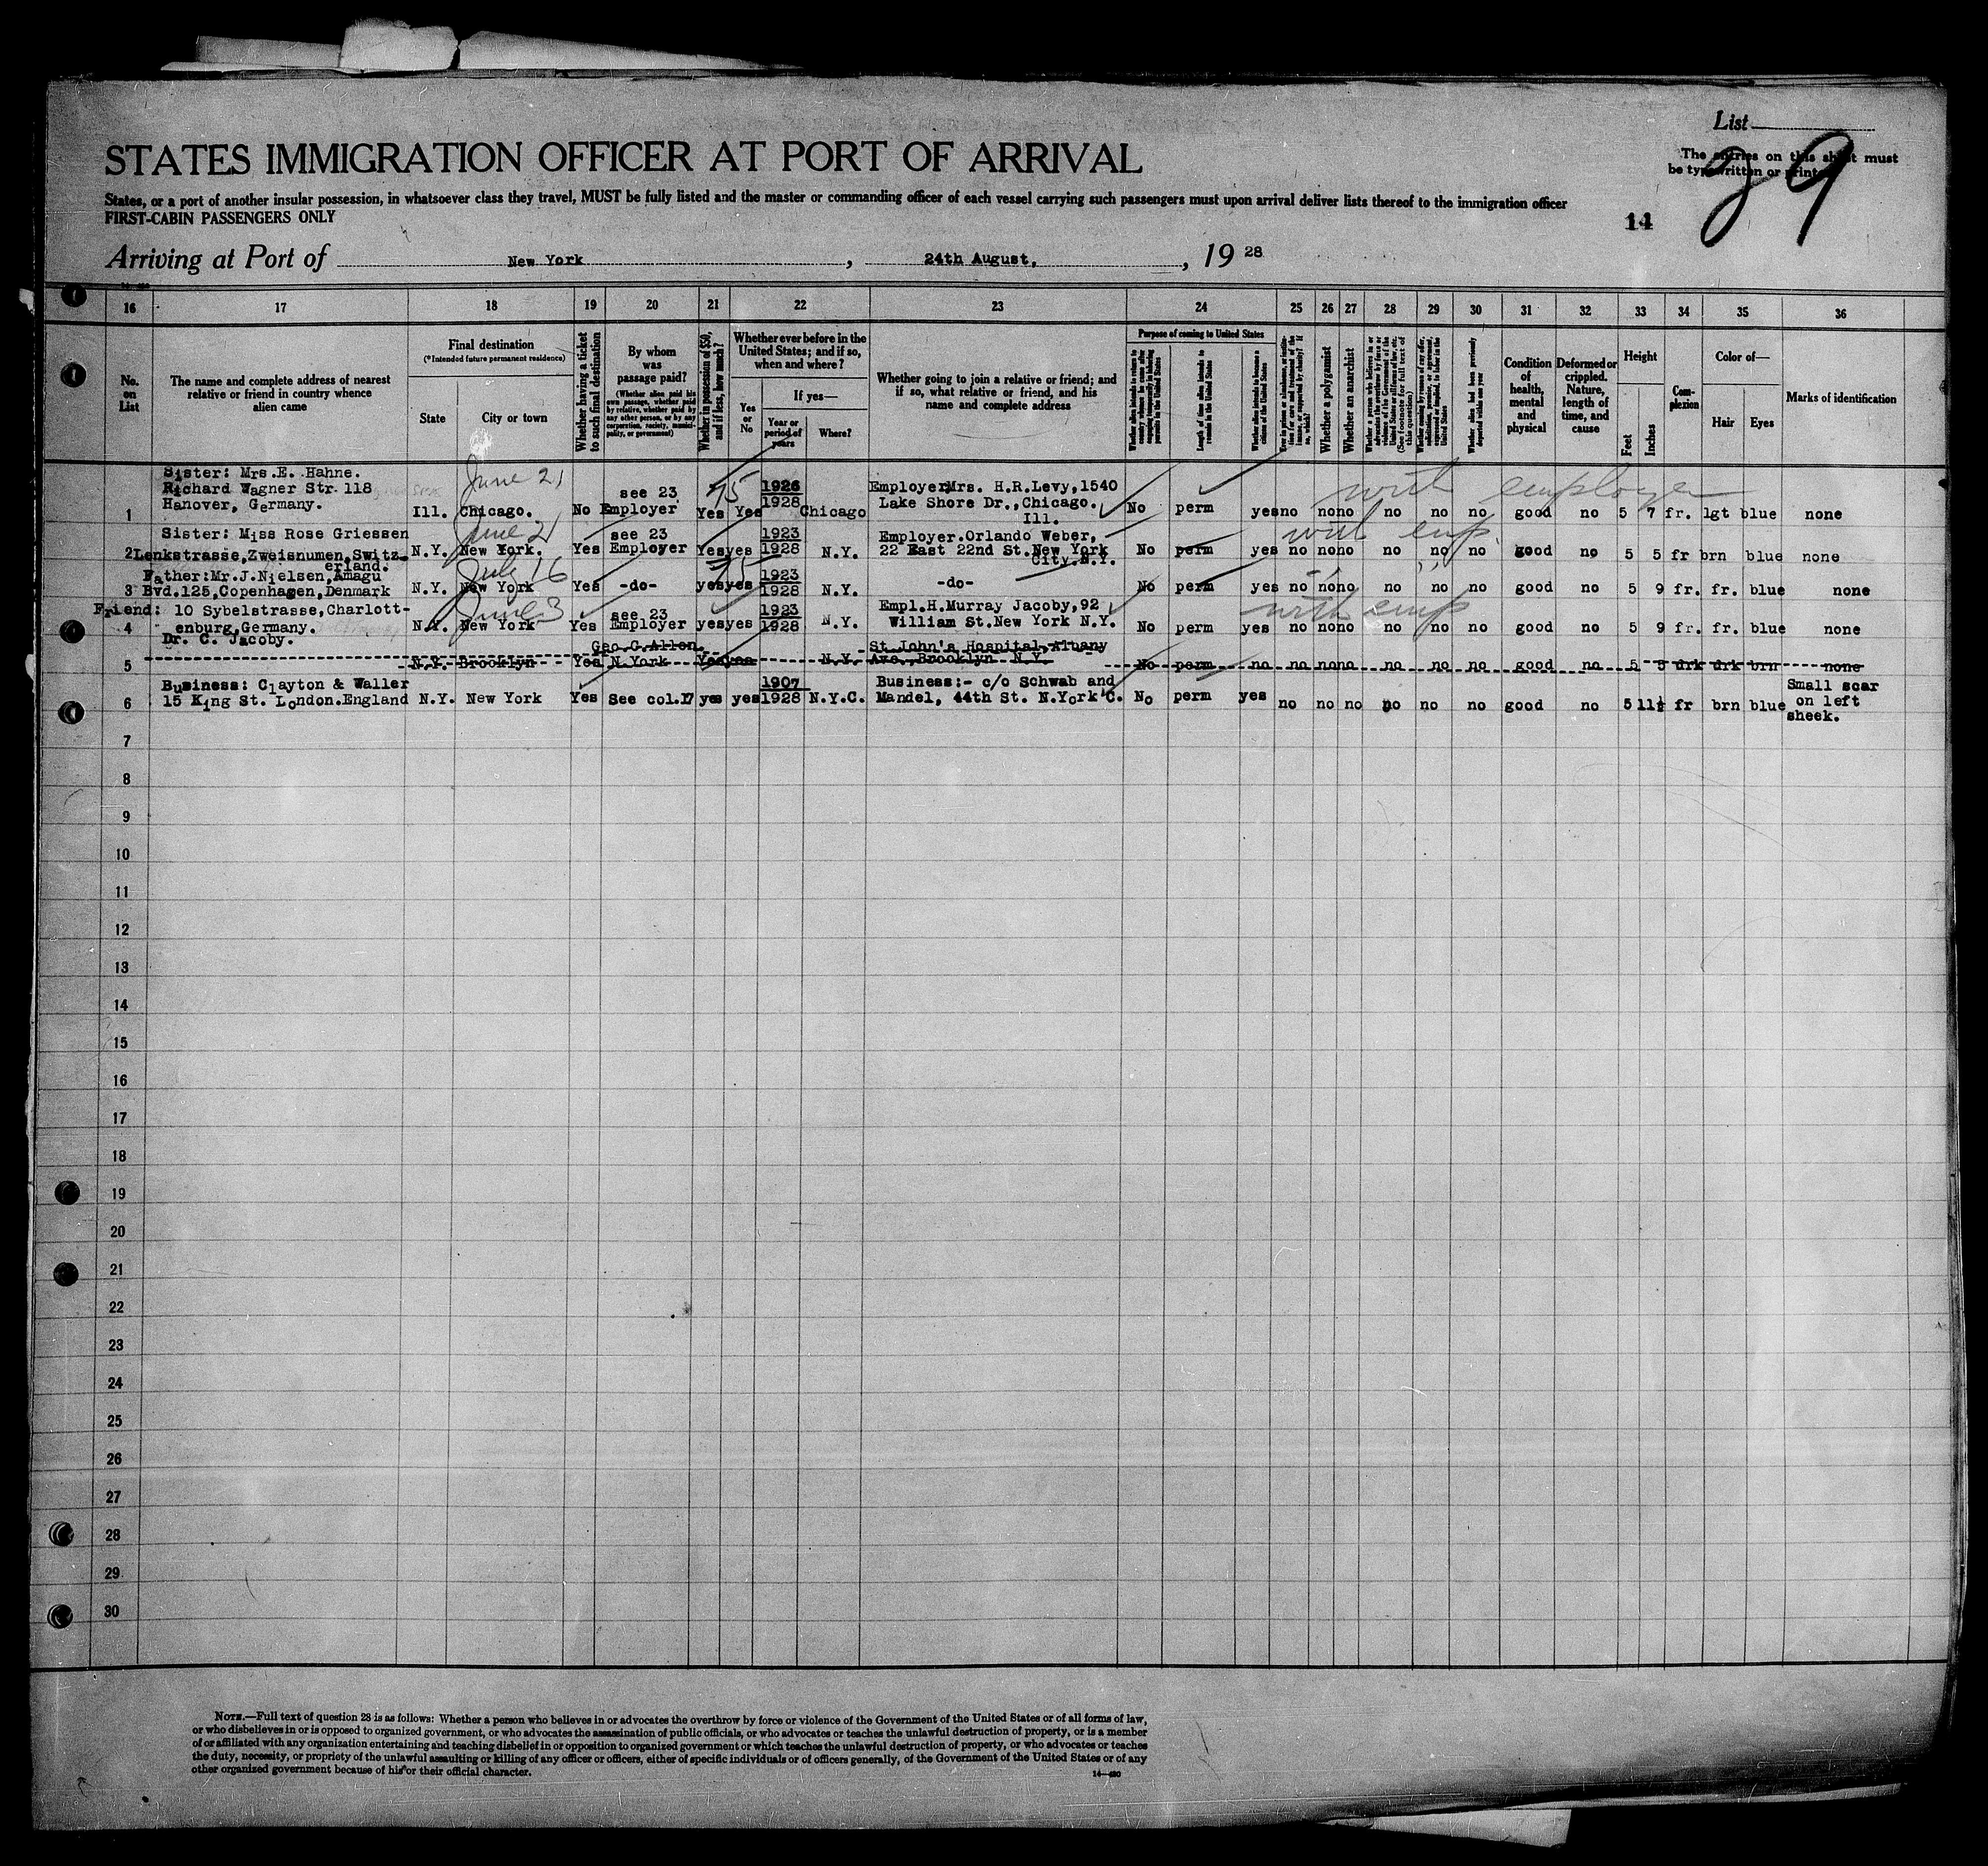 List
The entries on this sheet must
be typewritten or printed
29
14
STATES IMMIGRATION OFFICER AT PORT OF ARRIVAL
States, or a port of another insular possession, in whatsoever class they travel, MUST be fully listed and the master or commanding officer of each vessel carrying such passengers must upon arrival deliver lists thereof to the immigration officer
FIRST-CABIN PASSENGERS ONLY
Arriving at Port of New York, 24th August, 1928
16 17 18 19 20 21 22 23 24 25 26 27 28 29 30 31 32 33 34 35 36
No. on List
The name and complete address of nearest relative or friend in country whence alien came
Final destination
(*Intended future permanent residence)
State
City or town
Whether having a ticket to such final destination
By whom was passage paid?
(Whether alien paid his own passage, whether paid by relative, whether paid by any other person, or by any corporation, society, municipality, or government)
Whether in possession of $50, and if less, how much?
Whether ever before in the United States; and if so, when and where?
Yes or No
If yes—
Year or period of years
Where?
Whether going to join a relative or friend; and if so, what relative or friend, and his name and complete address
Purpose of coming to United States
Length of time alien intends to remain in the United States
Whether alien intends to become a citizen of the United States
Whether a polygamist
Whether an anarchist
Condition of health, mental and physical
Deformed or crippled. Nature, length of time, and cause
Height
Feet
Inches
Complexion
Color of—
Hair
Eyes
Marks of identification
June 21
with employer
Sister: Mrs.E. Hahne.
Richard Wagner Str. 118
Hanover, Germany.
1 Ill. Chicago. No see 23 Employer Yes 75 Yes 1926 1928 Chicago Employer Mrs. H.R.Levy, 1540 Lake Shore Dr., Chicago. Ill. No perm yes no no no no no no good no 5 7 fr. lgt blue none
June 21
with emp
Sister: Miss Rose Griessen
2 Lenkstrasse,Zweisnumen,Switz_ erland. N.Y. New York. Yes see 23 Employer Yes yes 1923 1928 N.Y. Employer.Orlando Weber, 22 East 22nd St.New York City.N.Y. No perm yes no no no no no no good no 5 5 fr brn blue none
July 16
Father:Mr.J.Nielsen,Amagu
3 Bvd.125,Copenhagen,Denmark N.Y. New York Yes -do- yes 75 yes 1923 1928 N.Y. -do- No perm yes no no no no no no good no 5 9 fr. fr. blue none
June 3
with emp
Friend: 10 Sybelstrasse,Charlott-
4 enburg,Germany. N.Y. New York Yes see 23 Employer yes yes 1923 1928 N.Y. Empl.H.Murray Jacoby,92 William St.New York N.Y. No perm yes no no no no no no good no 5 9 fr. fr. blue none
Dr. C. Jacoby.
5 N.Y. Brooklyn Yes Geo C.Allen. N York Yes yes N.Y. St.John's Hospital,Albany Ave.,Brooklyn N.Y. No perm no no no no no no no good no 5 3 drk drk brn none
Business: Clayton & Waller
6 15 King St. London.England N.Y. New York Yes See col.17 yes yes 1907 1928 N.Y.C. Business:- c/o Schwab and Mandel, 44th St. N.York C. No perm yes no no no no no no good no 5 11½ fr brn blue Small scar on left sheek.
7
8
9
10
11
12
13
14
15
16
17
18
19
20
21
22
23
24
25
26
27
28
29
30
NOTE.—Full text of question 28 is as follows: Whether a person who believes in or advocates the overthrow by force or violence of the Government of the United States or of all forms of law,
or who disbelieves in or is opposed to organized government, or who advocates the assassination of public officials, or who advocates or teaches the unlawful destruction of property, or is a member
of or affiliated with any organization entertaining and teaching disbelief in or opposition to organized government or which teaches the unlawful destruction of property, or who advocates or teaches
the duty, necessity, or propriety of the unlawful assaulting or killing of any officer or officers, either of specific individuals or of officers generally, of the Government of the United States or of any
other organized government because of his or their official character.
14—420